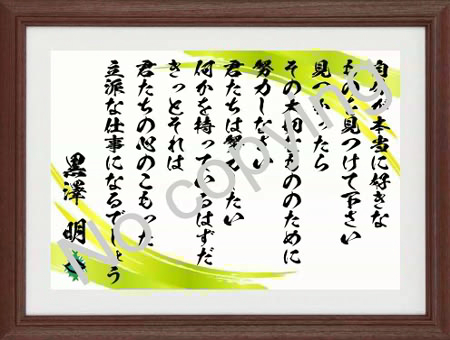 自分が本当に好きな
ものを見つけて下さい
見つかったら
その大切なもののために
努力しなさい
君たちは努力したい
何かを持っているはずだ
きっとそれは
君たちの心のこもった
立派な仕事になるでしょう
黒澤 明
No copying